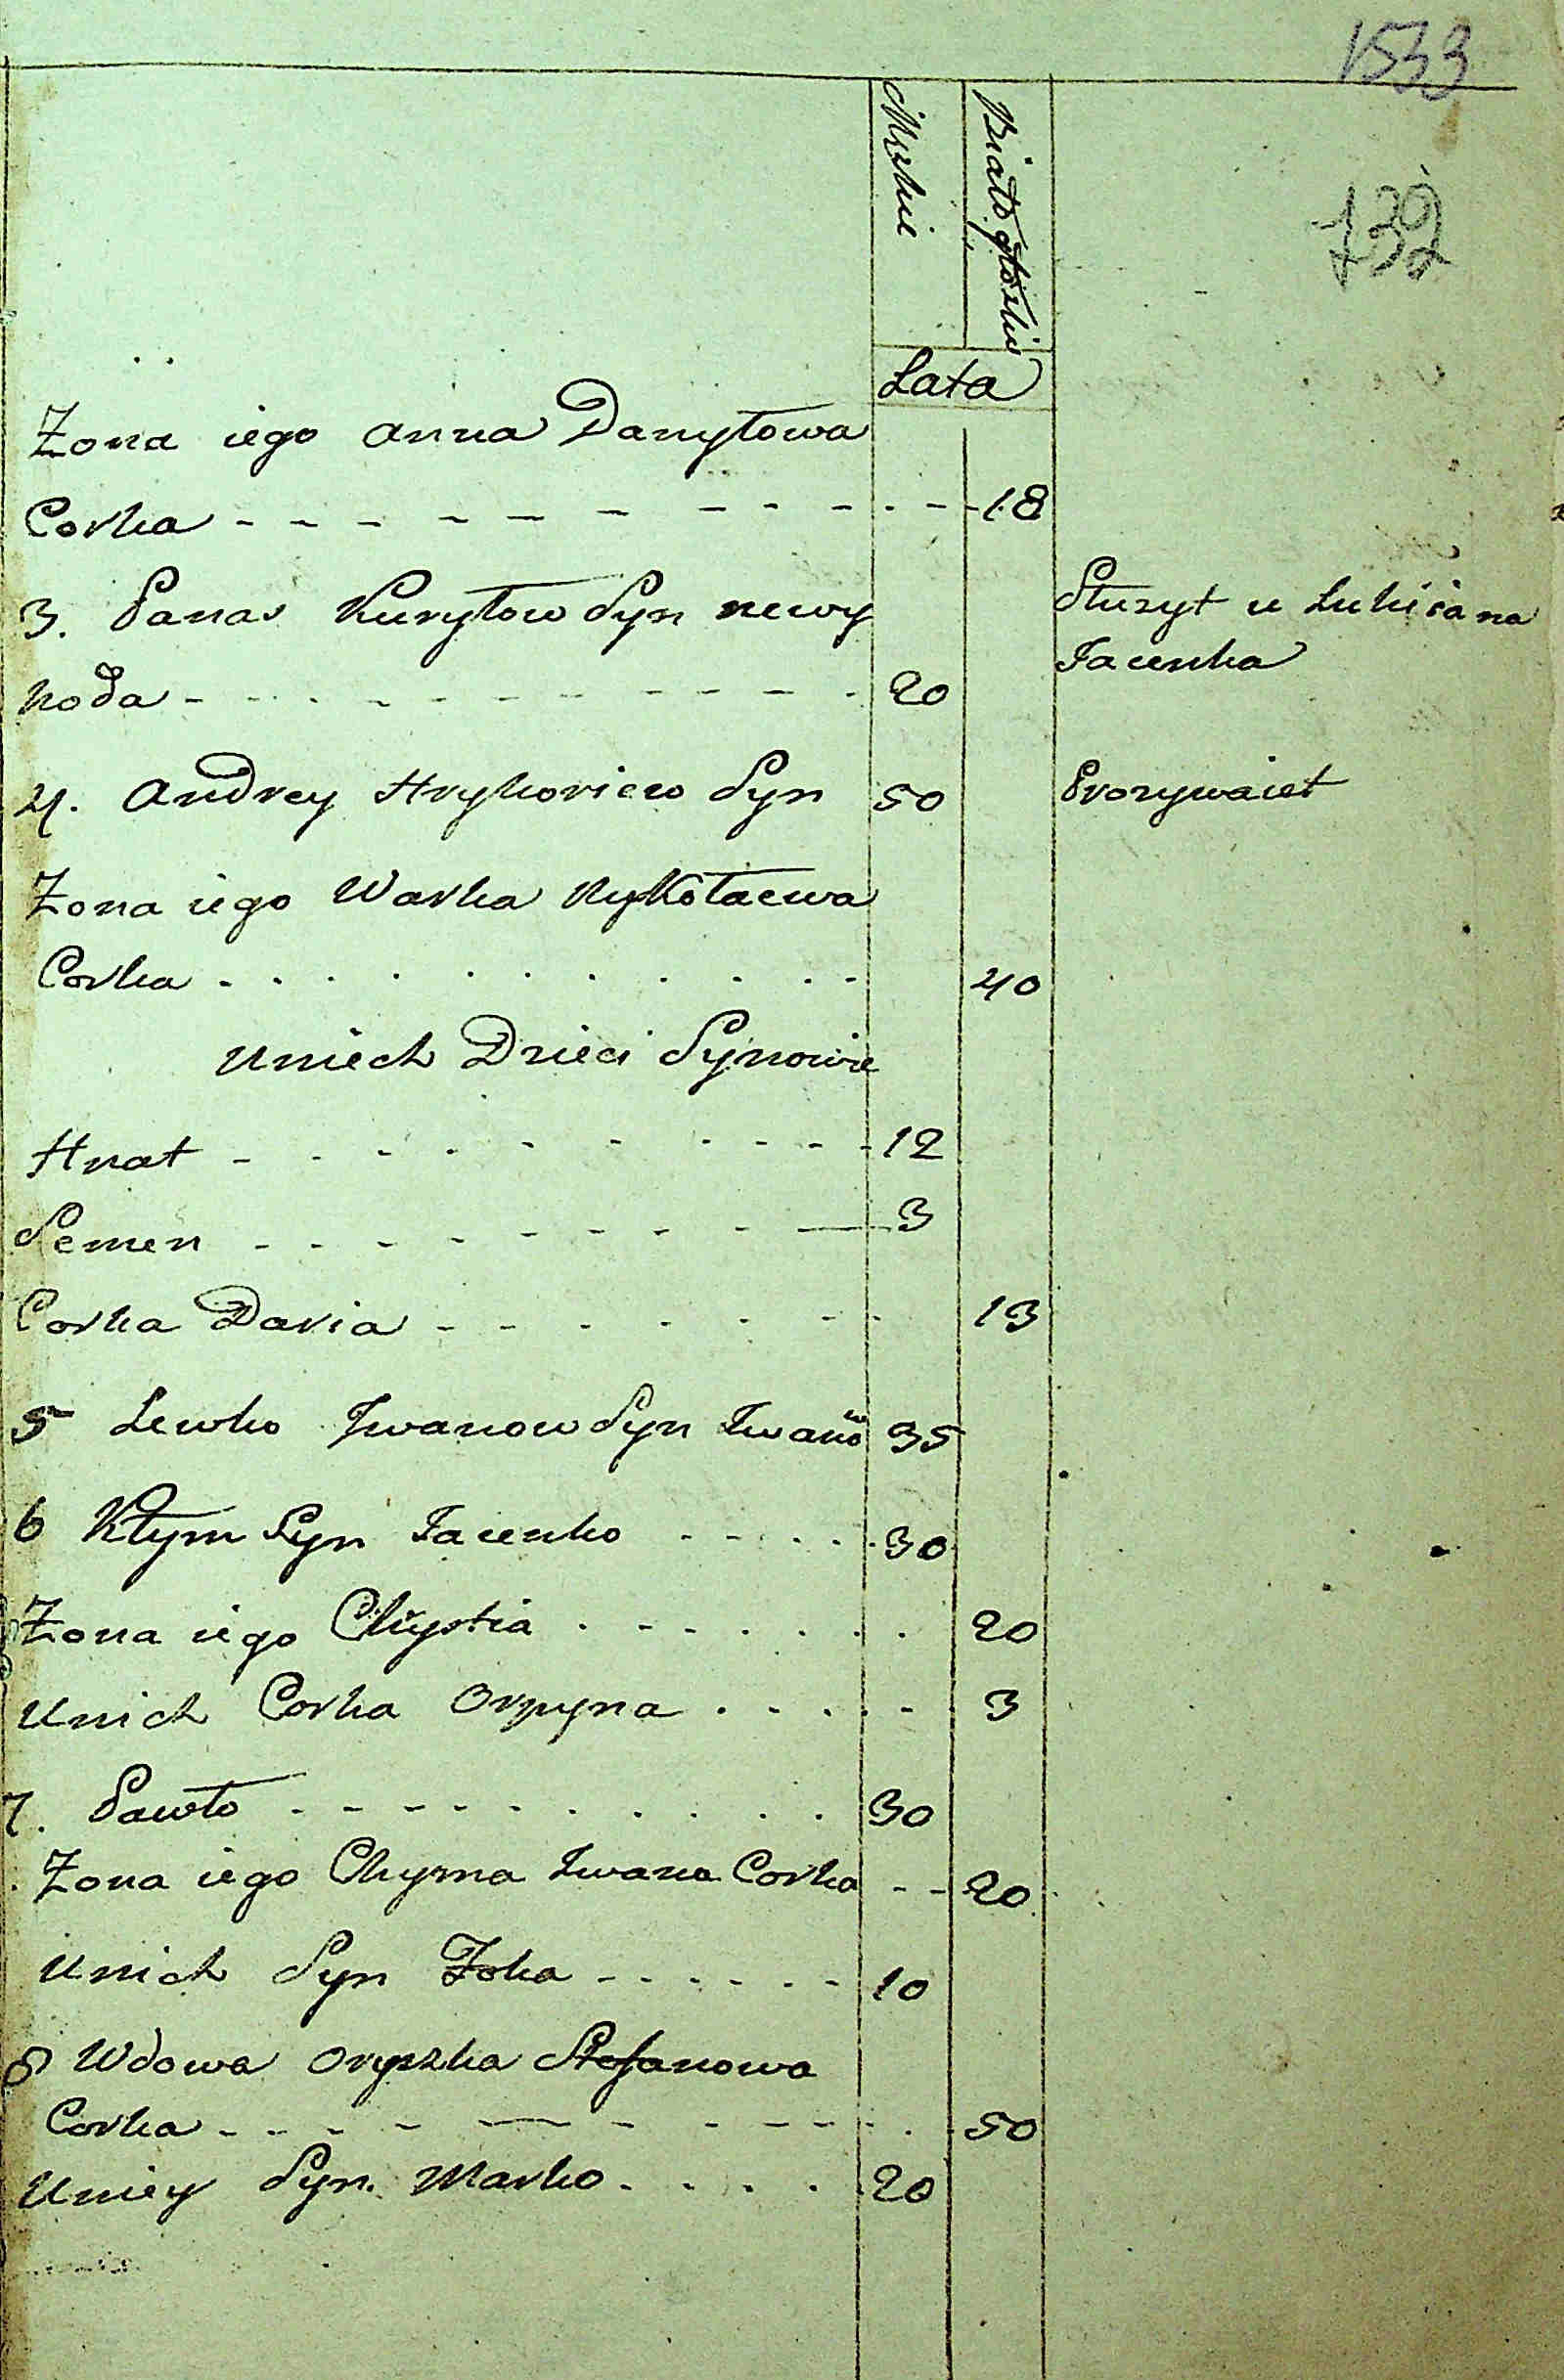 1533
132
Mezkie
Białogłozkie
Lata
Zona iego Anna Danyłowa
Corka - - - - - - - - - - - 18
3. Panas Kuryłow Syn newy
Służyt u Lukiiana
hoda - - - - - - - - - - 20
Jacenka
4. Andrey Hryhoriew Syn 50
Prozywaiet
Zona iego Warka Mykołaewa
Corka - - - - - - - - - - 40
Uniech Dzieci Synowie
Hnat - - - - - - - - - 12
Semen - - - - - - - - 3
Corka Daria - - - - - - - 13
5 Lewko Jwanow Syn Iwanow 35
6 Kłym Syn Jacenko - - - - - 30
Zona iego Chrystia - - - - - - 20
Unich Corka Orzyna - - - - - 3
7. Pawło - - - - - - - - - - 30
Zona iego Chyma Iwana Corka - - 20
Unich Syn Foka - - - - - - 10
8 Wdowa Oryszka Stefanowa
Corka - - - - - - - - - - 50
Uniey Syn. Marko - - - - - 20